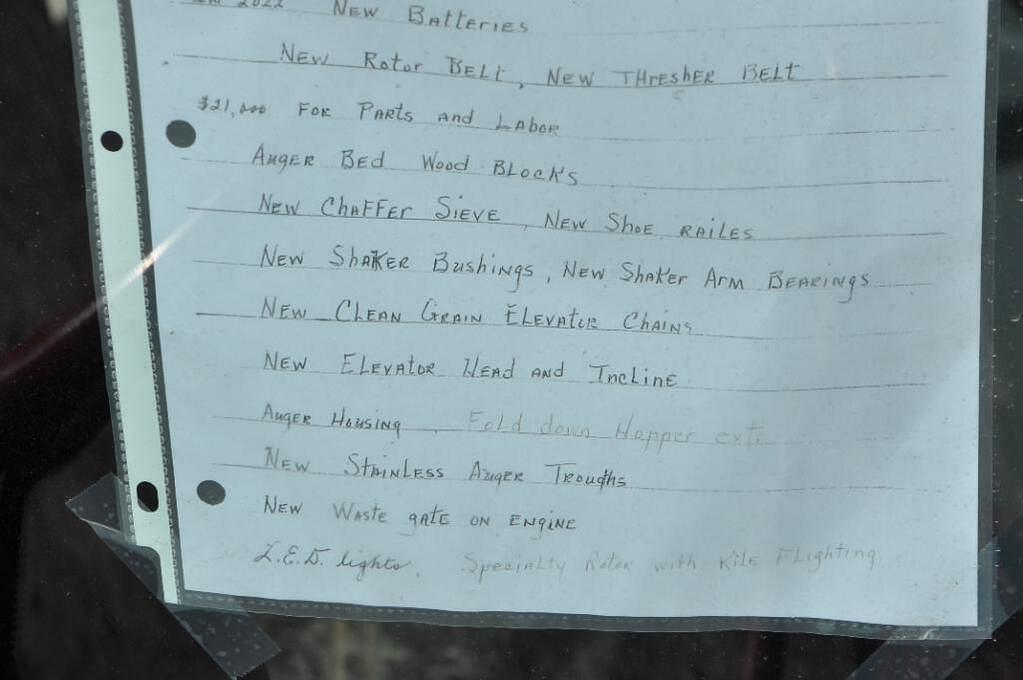 2022 New Batteries
New Rotor Belt, New Thresher Belt
$21,000 For Parts and Labor
Auger Bed Wood Block's
New Chaffer Sieve, New Shoe railes
New Shaker Bushings, New Shaker Arm Bearings
New Clean Grain Elevator Chains
New Elevator Head and Incline
Auger Housing, Fold down Hopper ext.
New Stainless Auger Troughs
New Waste gate on Engine
L.E.D. lights. Specialty Rotor with Kile Flighting